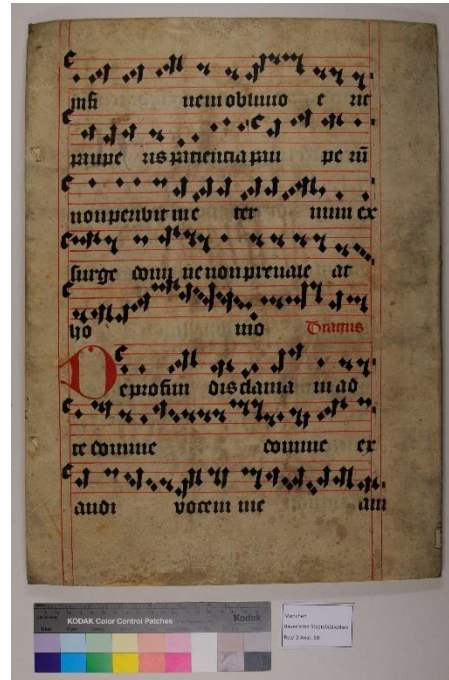 nem oblivio e rit
paupe ris paciencia pau pe rū
non peribit in e ter num ex
surge domi ne non prevale at
ho mo Tractus
De profun dis clama vi ad
te domine domine ex
audi vocem me am
KODAK Color Control Patches Kodak
München
Bayerische Staatsbibliothek